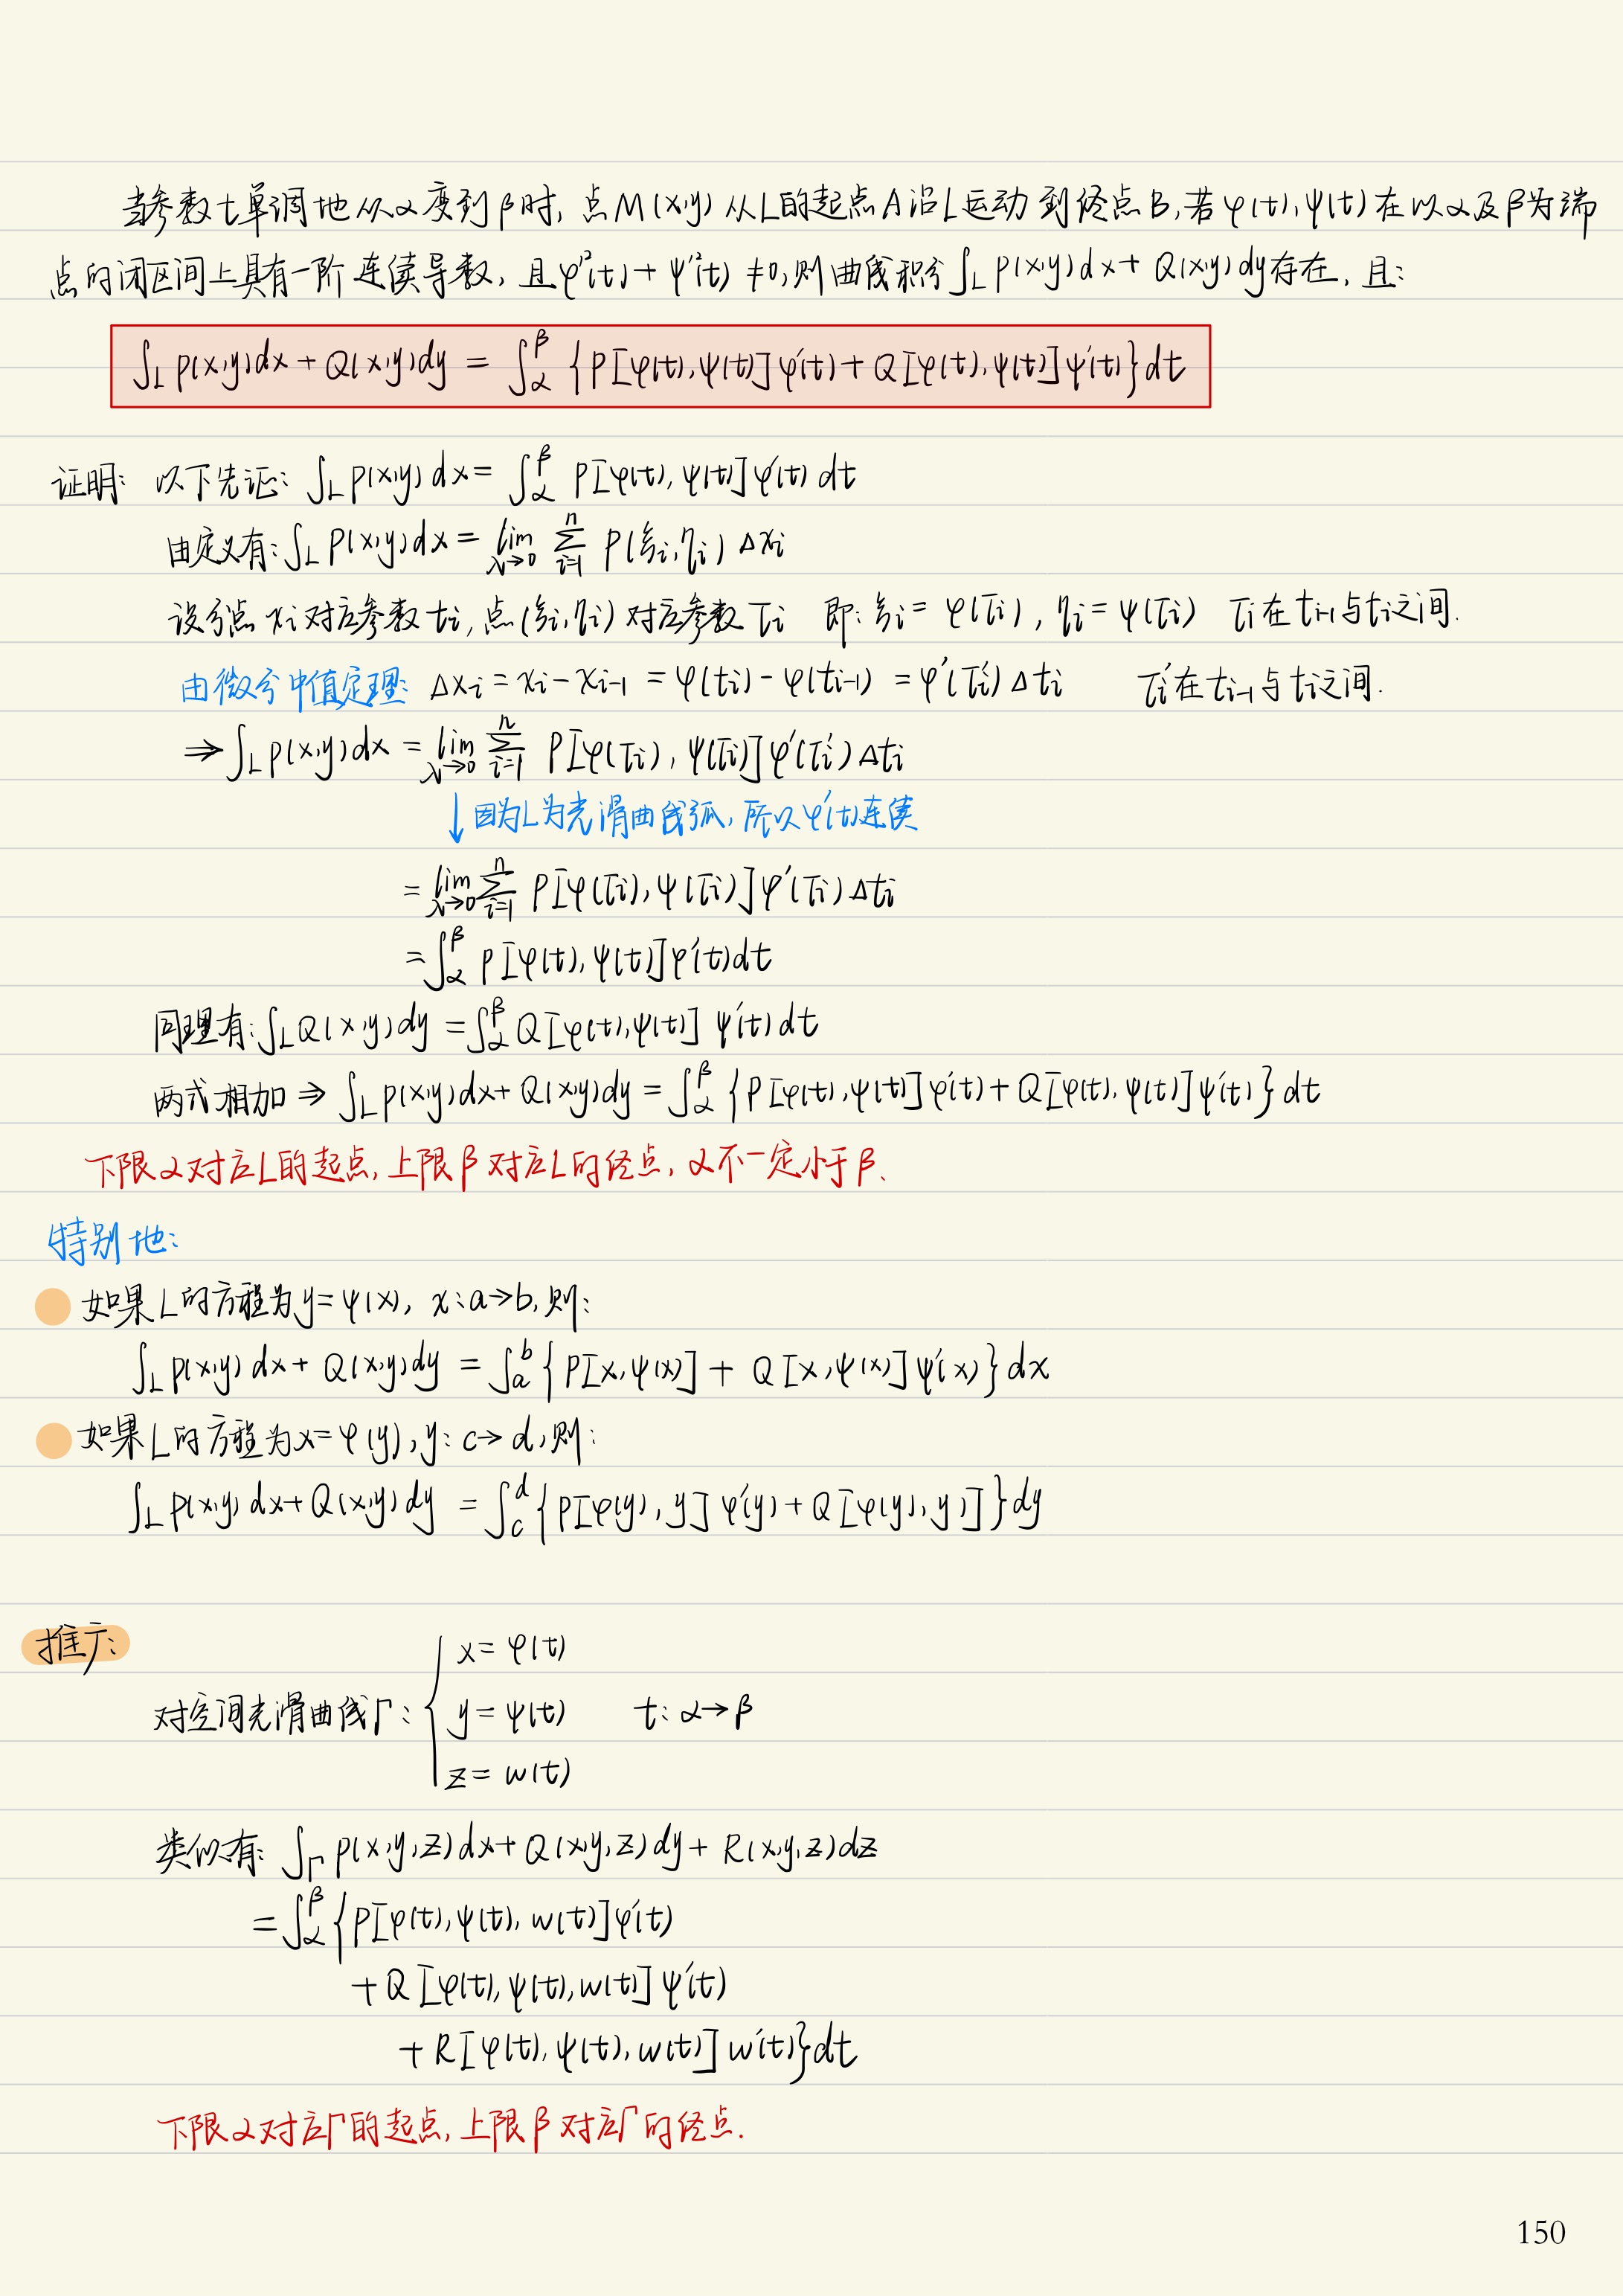 当参数t单调地从α变到β时, 点M(x,y)从L的起点A沿L运动到终点B,若φ(t),ψ(t)在以α及β为端
点的闭区间上具有一阶连续导数, 且φ'²(t)+ψ'²(t)≠0,则曲线积分∫_L P(x,y)dx+Q(x,y)dy存在, 且:
∫_L P(x,y)dx+Q(x,y)dy = ∫_α^β {P[φ(t),ψ(t)]φ'(t)+Q[φ(t),ψ(t)]ψ'(t)}dt
证明: 以下先证: ∫_L P(x,y)dx = ∫_α^β P[φ(t),ψ(t)]φ'(t)dt
由定义有: ∫_L P(x,y)dx = lim_{λ→0} Σ_{i=1}^n P(ξi,ηi)Δxi
设分点xi对应参数ti, 点(ξi,ηi)对应参数τi 即: ξi=φ(τi), ηi=ψ(τi) τi在ti-1与ti之间.
由微分中值定理: Δxi=xi-xi-1=φ(ti)-φ(ti-1)=φ'(τi')Δti τi'在ti-1与ti之间.
⇒∫_L P(x,y)dx = lim_{λ→0} Σ_{i=1}^n P[φ(τi),ψ(τi)]φ'(τi')Δti
↓因为L为光滑曲线弧, 所以φ'(t)连续
= lim_{λ→0} Σ_{i=1}^n P[φ(τi),ψ(τi)]φ'(τi)Δti
= ∫_α^β P[φ(t),ψ(t)]φ'(t)dt
同理有: ∫_L Q(x,y)dy = ∫_α^β Q[φ(t),ψ(t)]ψ'(t)dt
两式相加 ⇒ ∫_L P(x,y)dx+Q(x,y)dy = ∫_α^β {P[φ(t),ψ(t)]φ'(t)+Q[φ(t),ψ(t)]ψ'(t)}dt
下限α对应L的起点, 上限β对应L的终点, α不一定小于β.
特别地:
如果L的方程为y=ψ(x), x:a→b,则:
∫_L P(x,y)dx+Q(x,y)dy = ∫_a^b {P[x,ψ(x)]+Q[x,ψ(x)]ψ'(x)}dx
如果L的方程为x=φ(y), y:c→d,则:
∫_L P(x,y)dx+Q(x,y)dy = ∫_c^d {P[φ(y),y]φ'(y)+Q[φ(y),y)]}dy
推广:
x=φ(t)
对空间光滑曲线Γ: { y=ψ(t) t:α→β
z=w(t)
类似有: ∫_Γ P(x,y,z)dx+Q(x,y,z)dy+R(x,y,z)dz
= ∫_α^β {P[φ(t),ψ(t),w(t)]φ'(t)
+Q[φ(t),ψ(t),w(t)]ψ'(t)
+R[φ(t),ψ(t),w(t)]w'(t)}dt
下限α对应Γ的起点, 上限β对应Γ的终点.
150